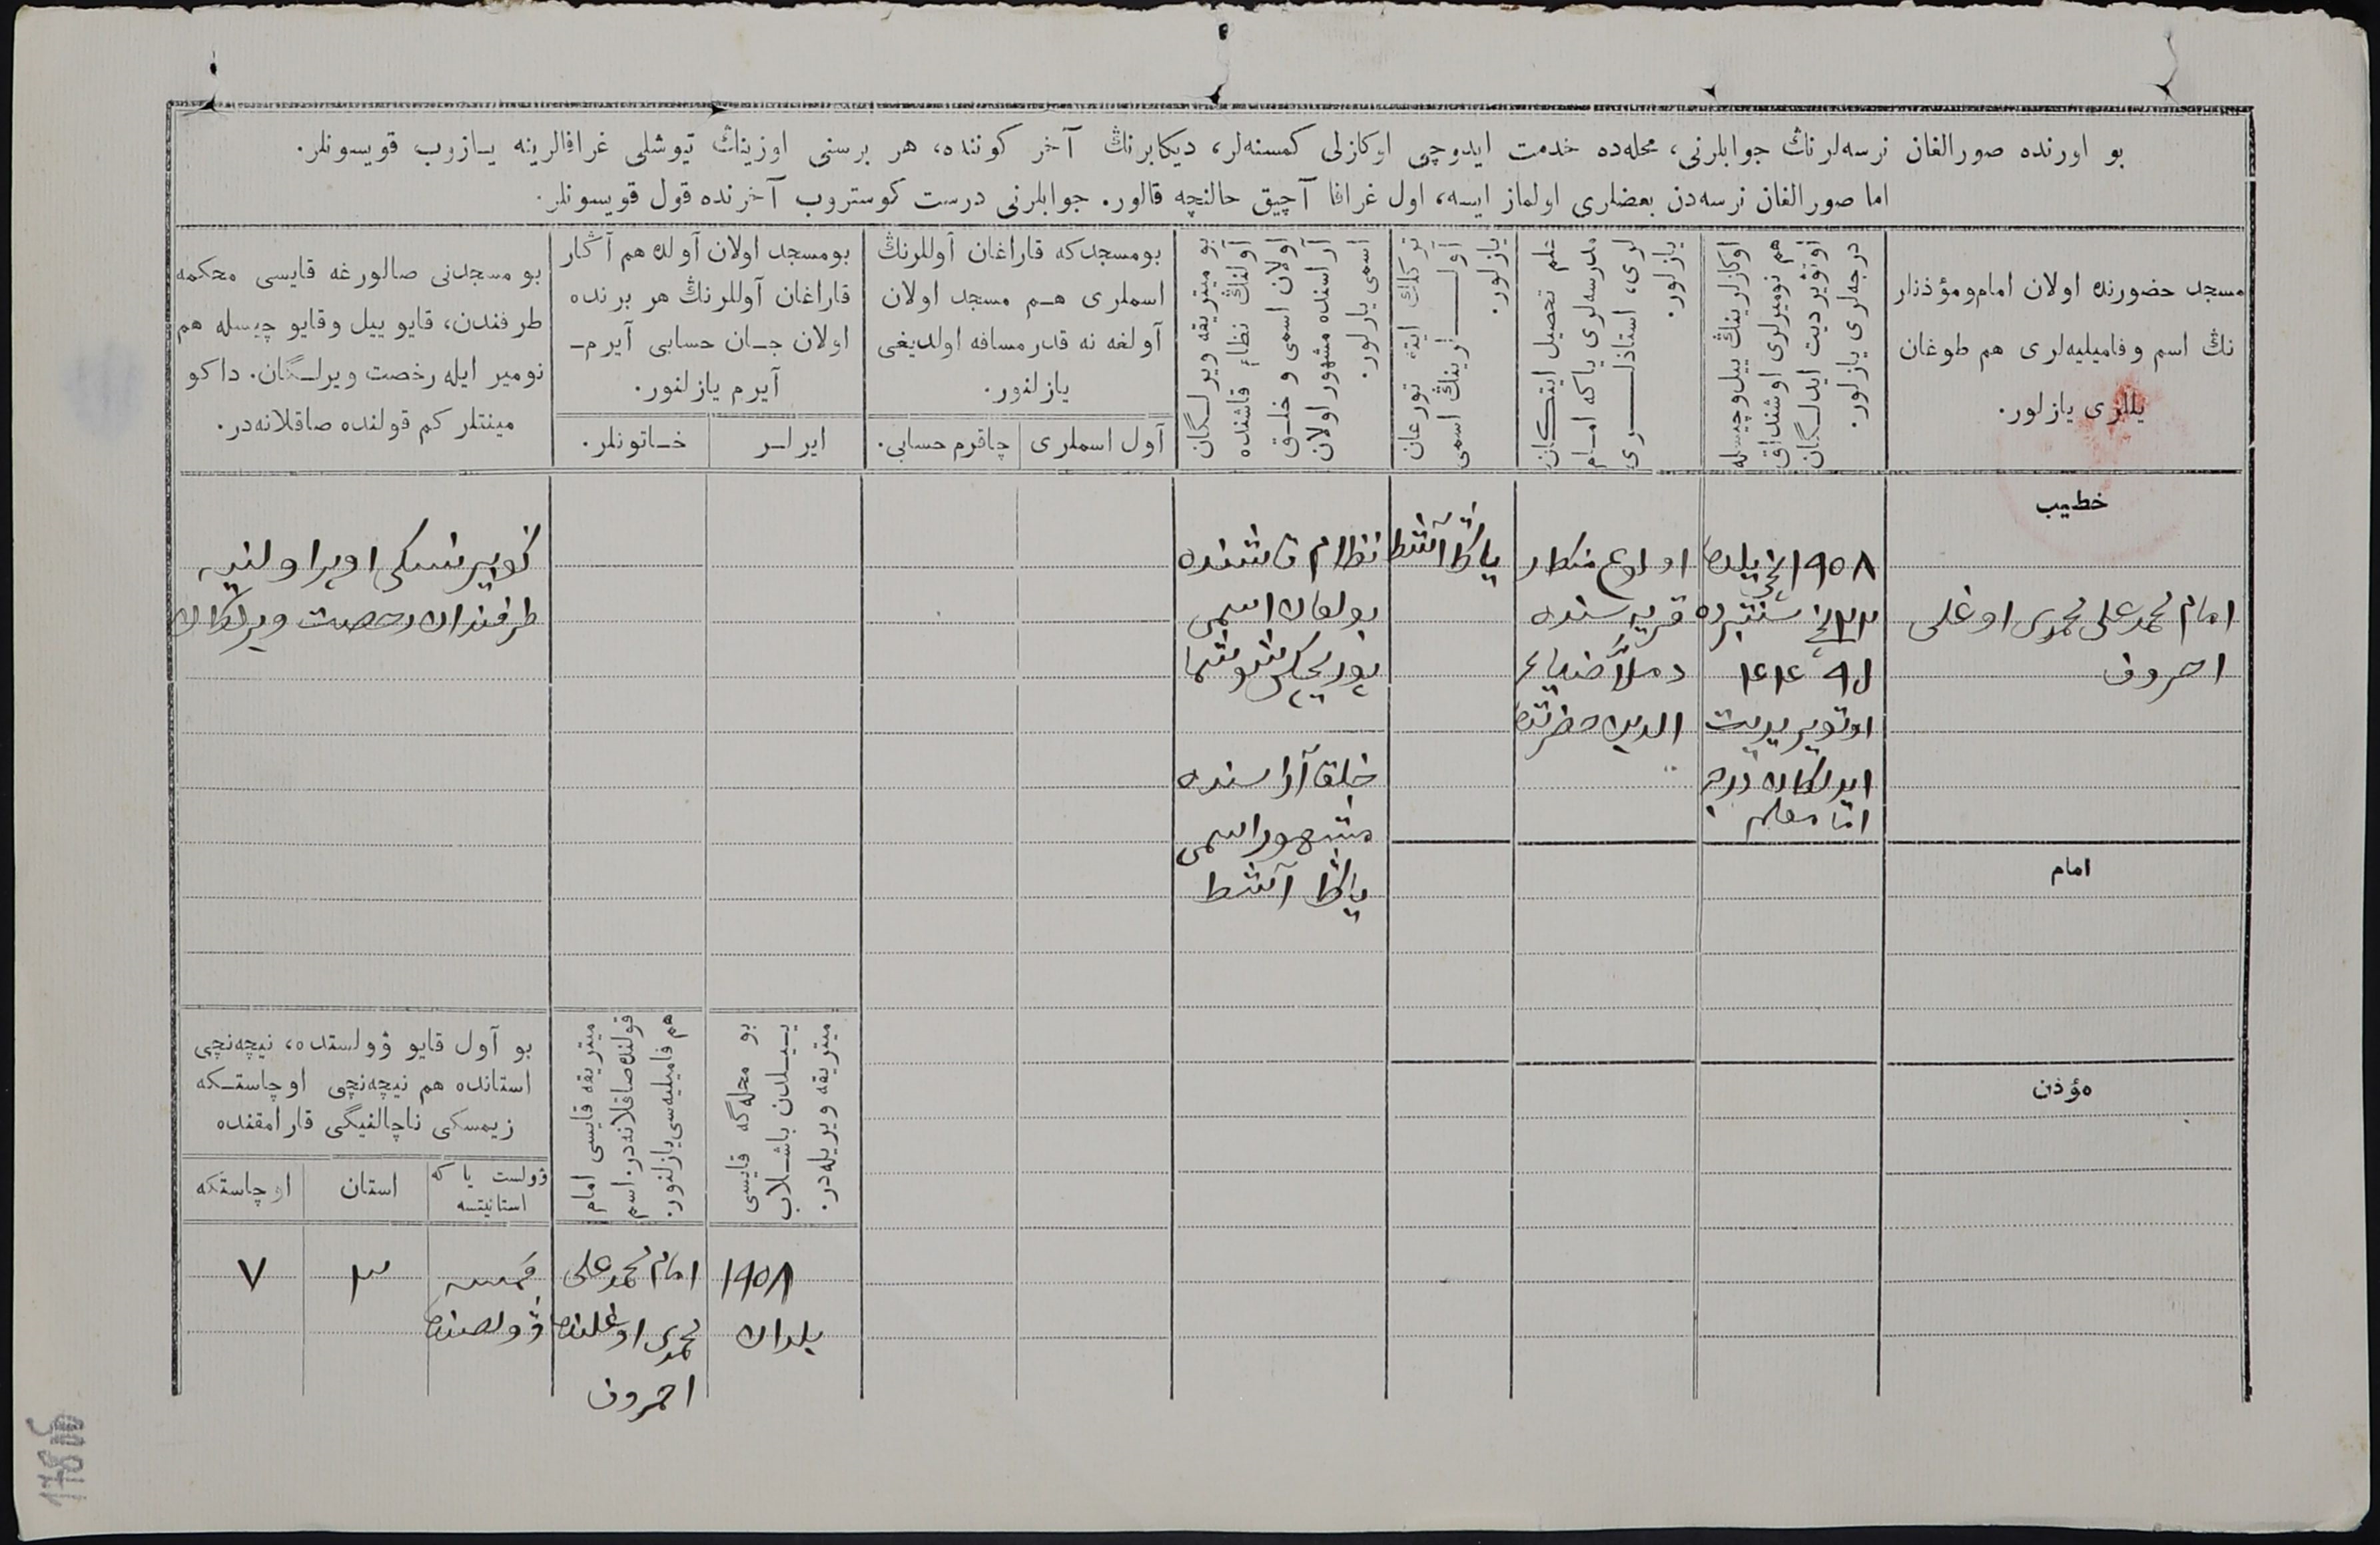 بو اورنده صورالغان نرسه‌لرنڭ جوابلرنی، محله‌ده خدمت ایدوچی اوکازلی کمسنه‌لر، دیکابرنڭ آخر کوننده، هر برسنی اوزینڭ تیوشلی غرافالرینه یـازوب قویسونلر.
اما صورالغان نرسه‌دن بعضلری اولماز ایسه، اول غرافا آچیق حالنچه قالور. جوابلرنی درست کوستروب آخرنده قول قویسونلر.
مسجد حضورنده اولان امام‌ومؤذنلر
نڭ اسم وفامیلیه‌لری هم طوغان
یللری یازلور.
اوکازلرینڭ ییل‌وچیسله
هم نومیرلری اوشنداق
اوتویردیت ایدلـگان
درجه‌لری یازلور.
علم تحصیل ایتـکان
مدرسه‌لری یاکه امـام
لری، استاذلـــری
یازلور.
ترکلك ایده تورغان
آولـــلرینڭ اسمی
یازلور.
بو میتریقه ویرلـگان
آولنڭ نظام قاشنده
اولان اسمی و خلـق
آراسنده مشهور اولان
اسمی یازلور.
بومسجدکه قاراغان آوللرنڭ
اسملری هـم مسجد اولان
آولغه نه قدر مسافه اولدیغی
یازلنور.
آول اسملری
چاقرم حسابی.
بومسجد اولان آولده هم آڭار
قاراغان آوللرنڭ هر برنده
اولان جـان حسابی آیرم-
آیرم یازلنور.
ایرلـر
خـاتونلر.
بو مسجدنی صالورغه قایسی محکمه
طرفندن، قایو ییل وقایو چیسله هم
نومیر ایله رخصت ویرلـگان. داکو
مینتلر کم قولنده صاقلانه‌در.
خطیب
امام محمدعلی محمدی اوغلی
احمروف
١٩٠٨ نچی یلده
٢٣ نچی سنتبرده
اوتویردیت
ایدلکان درجه
امام معلم
اولوغ
قریه سنده
دملا ضیاء
الدین حضرتده
یاڭا آتشط
نظام قاشنده
بولغان اسمی
خلق آراسنده
مشهور اسمی
یاڭا آتشط
طرفندان رخصت ویرلکان
امام
مؤذن
بو آول قایو ۋولستده، نیچه‌نچی
استانده هم نیچه‌نچی اوچاستـکه
زیمسکی ناچالنیگی قارامقنده
ۋولست یا که
استانیتسه
استان
اوچاستکه
میتریقه قایسی امام
قولنده‌صاقلانه‌در. اسم
هم فامیلیه‌سی‌یازلنور.
بو محله‌گه قایسی
ییـلدن باشـلاب
میتریقه ویریله‌در.
١٩٠٨
یلدان
امام محمدعلی
محمدی اوغلنده
احمروف
ۋولصنده
٣
٧